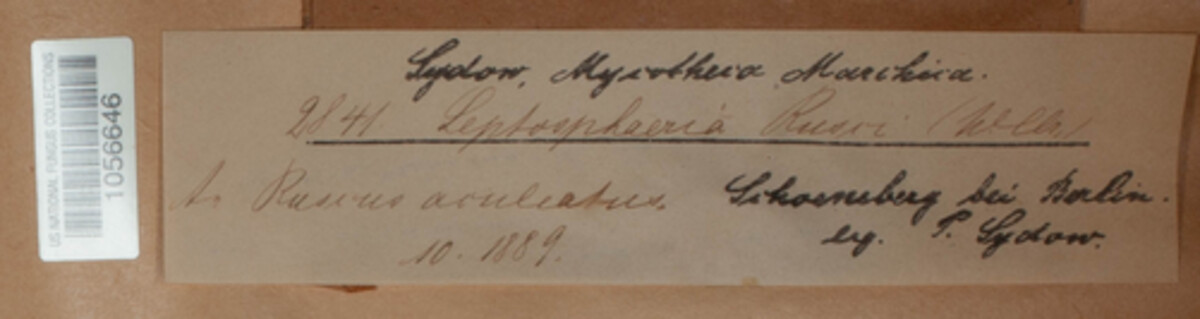 US NATIONAL FUNGUS COLLECTIONS
1056646
Sydow, Mycotheca Marchica.
2841 Leptosphaeria Rusci (Wllr)
A. Ruscus aculeatus.
10. 1889.
Schoeneberg bei Berlin.
leg. P. Sydow.